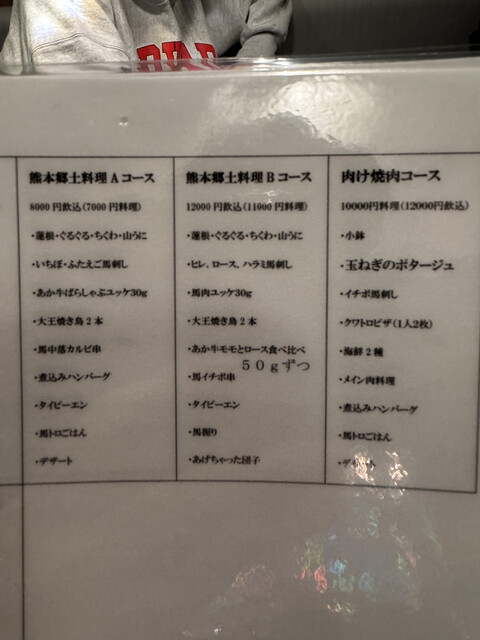 熊本郷土料理Aコース
8000円飲込(7000円料理)
・蓮根・ぐるぐる・ちくわ・山うに
・いちぼ・ふたえご馬刺し
・あか牛ばらしゃぶユッケ30g
・大王焼き鳥2本
・馬中落カルビ串
・煮込みハンバーグ
・タイピーエン
・馬トロごはん
・デザート
熊本郷土料理Bコース
12000円飲込(11000円料理)
・蓮根・ぐるぐる・ちくわ・山うに
・ヒレ、ロース、ハラミ馬刺し
・馬肉ユッケ30g
・大王焼き鳥2本
・あか牛モモとロース食べ比べ
50gずつ
・馬イチボ串
・タイピーエン
・馬握り
・あげちゃった団子
肉け焼肉コース
10000円料理(12000円飲込)
・小鉢
・玉ねぎのポタージュ
・イチボ馬刺し
・クワトロピザ(1人2枚)
・海鮮2種
・メイン肉料理
・煮込みハンバーグ
・馬トロごはん
・デザート